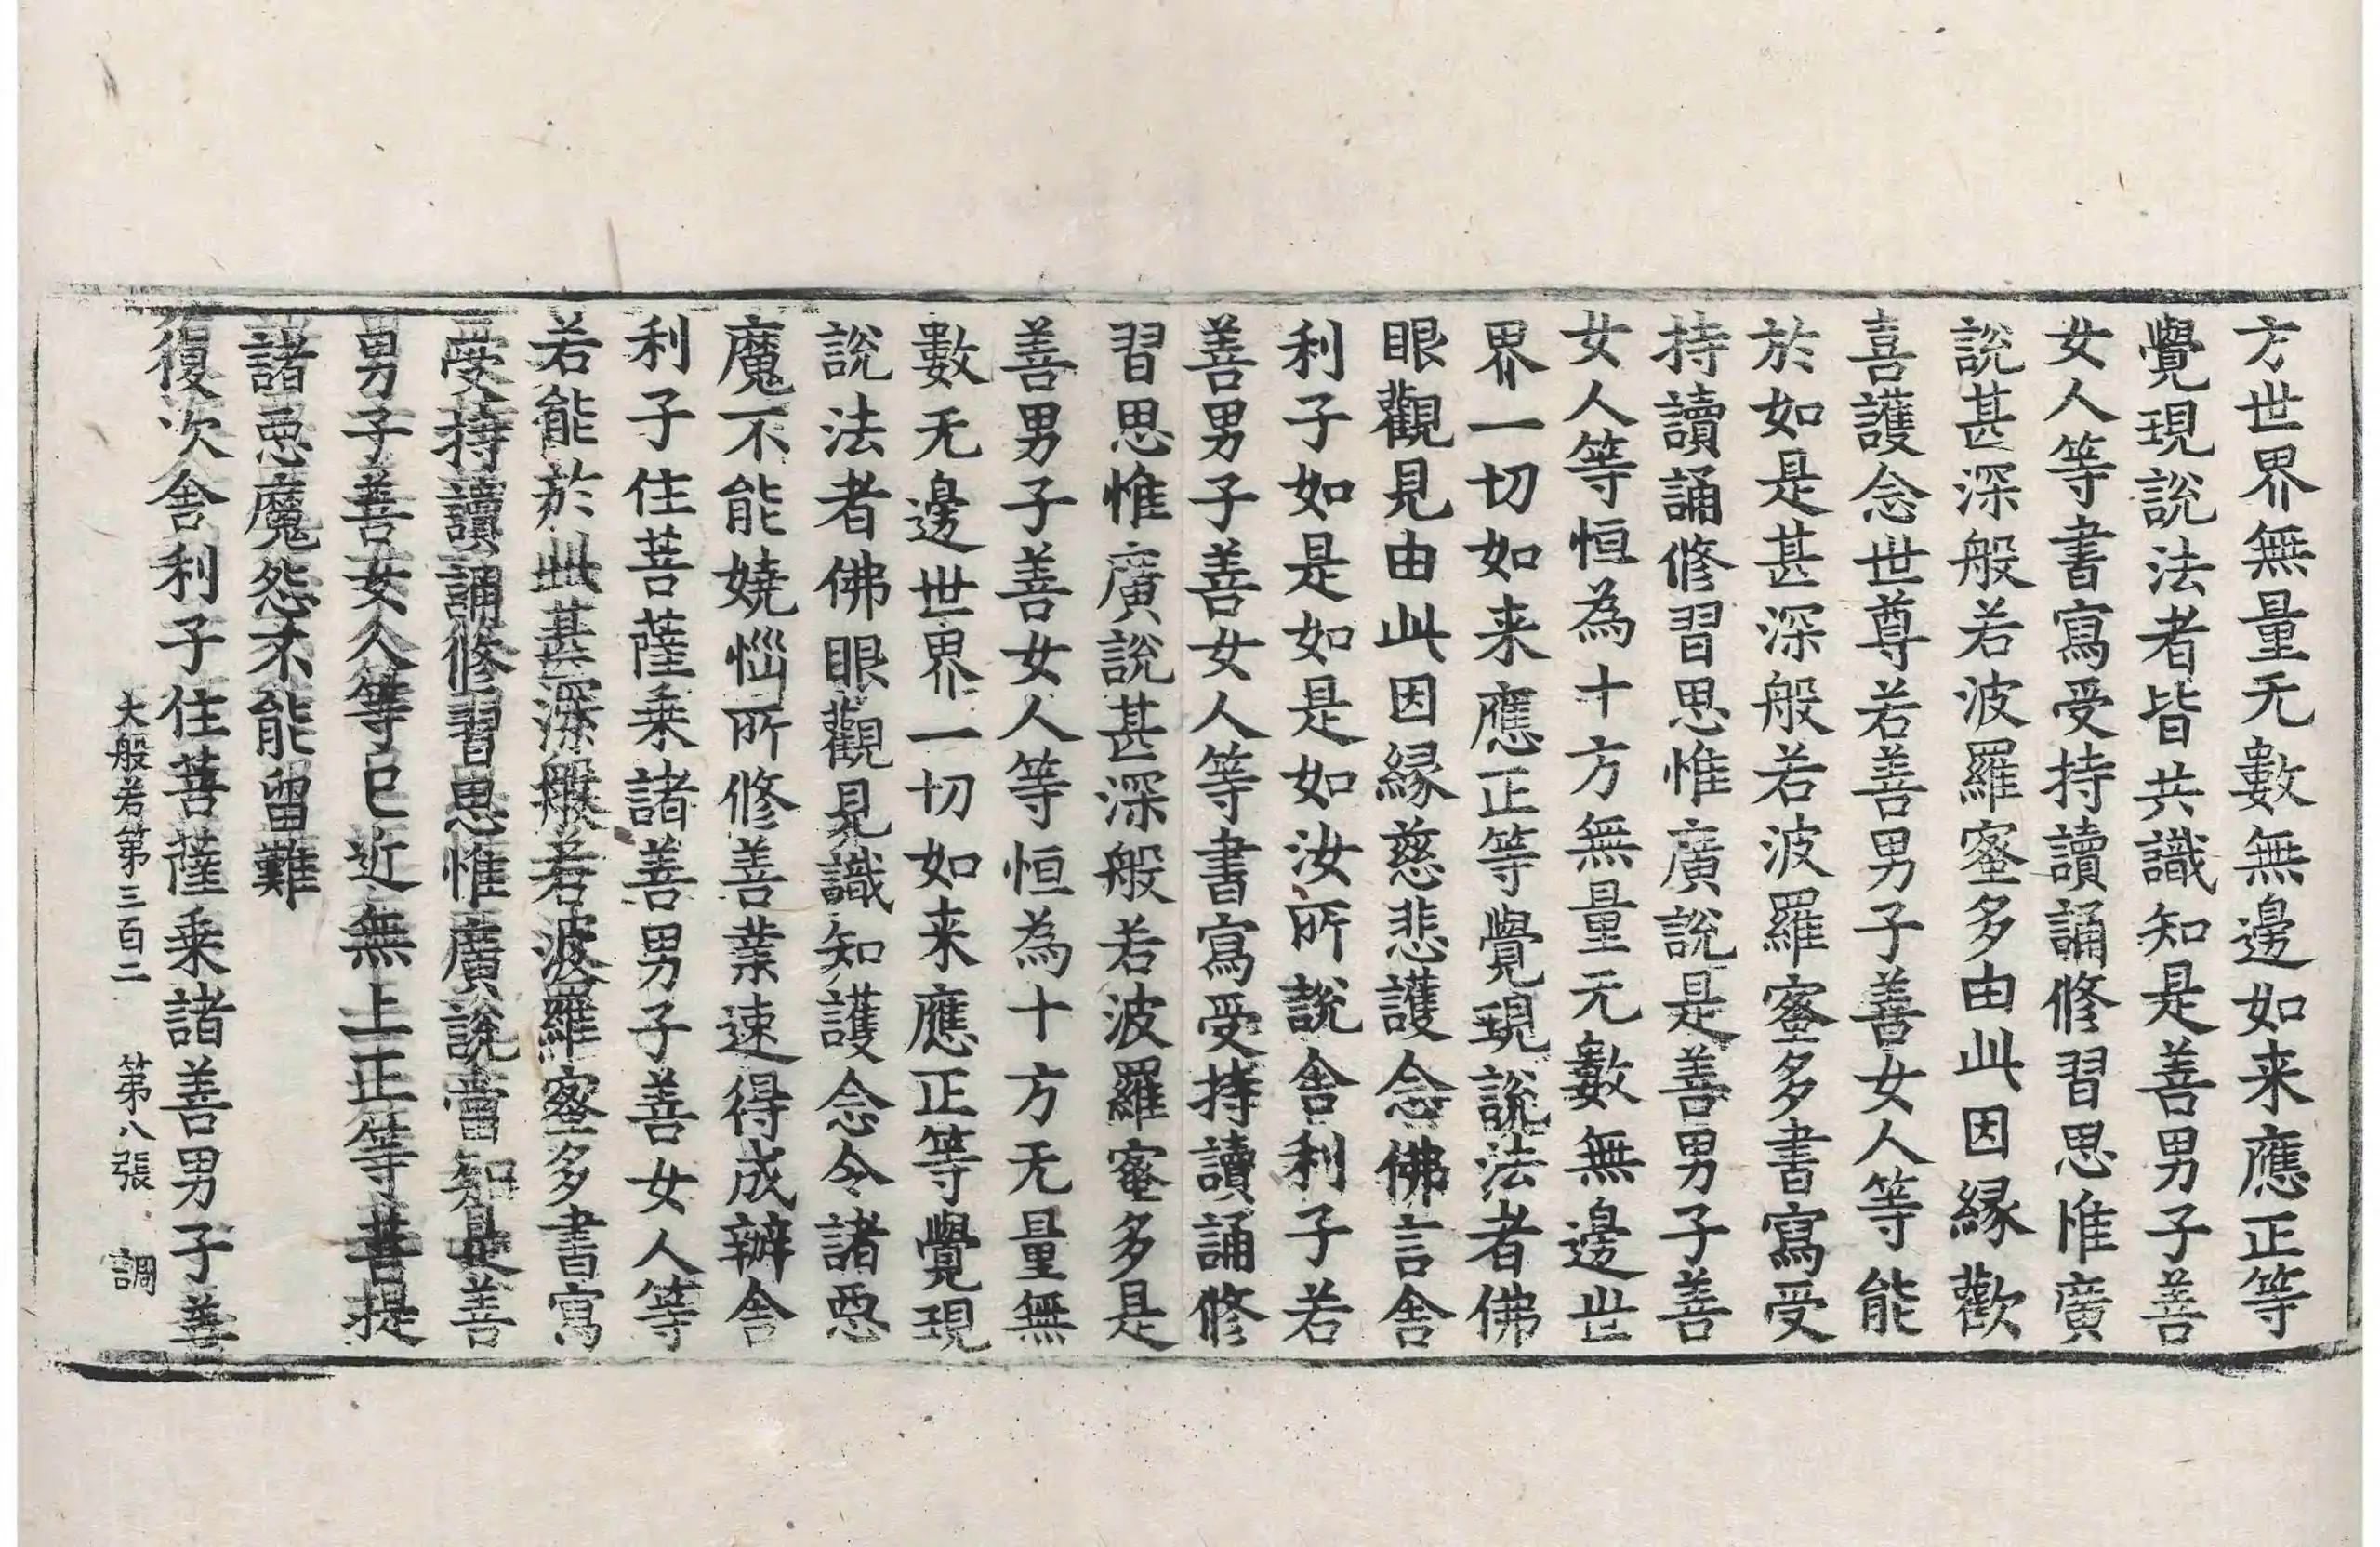 方世界無量无數無邊如来應正等
覺現說法者皆共識知是善男子善
女人等書寫受持讀誦修習思惟廣
說甚深般若波羅蜜多由此因緣歡
喜護念世尊若善男子善女人等能
於如是甚深般若波羅蜜多書寫受
持讀誦修習思惟廣說是善男子善
女人等恒為十方無量无數無邊世
界一切如来應正等覺現說法者佛
眼觀見由此因緣慈悲護念佛言舍
利子如是如是如汝所說舍利子若
善男子善女人等書寫受持讀誦修
習思惟廣說甚深般若波羅蜜多是
善男子善女人等恒為十方无量無
數无邊世界一切如来應正等覺現
說法者佛眼觀見識知護念令諸惡
魔不能嬈惱所修善業速得成辦舍
利子住菩薩乗諸善男子善女人等
若能於此甚深般若波羅蜜多書寫
受持讀誦修習思惟廣說當知是善
男子善女人等已近無上正等菩提
諸惡魔怨不能留難
復次舍利子住菩薩乗諸善男子善
大般若第三百二 第八張 調